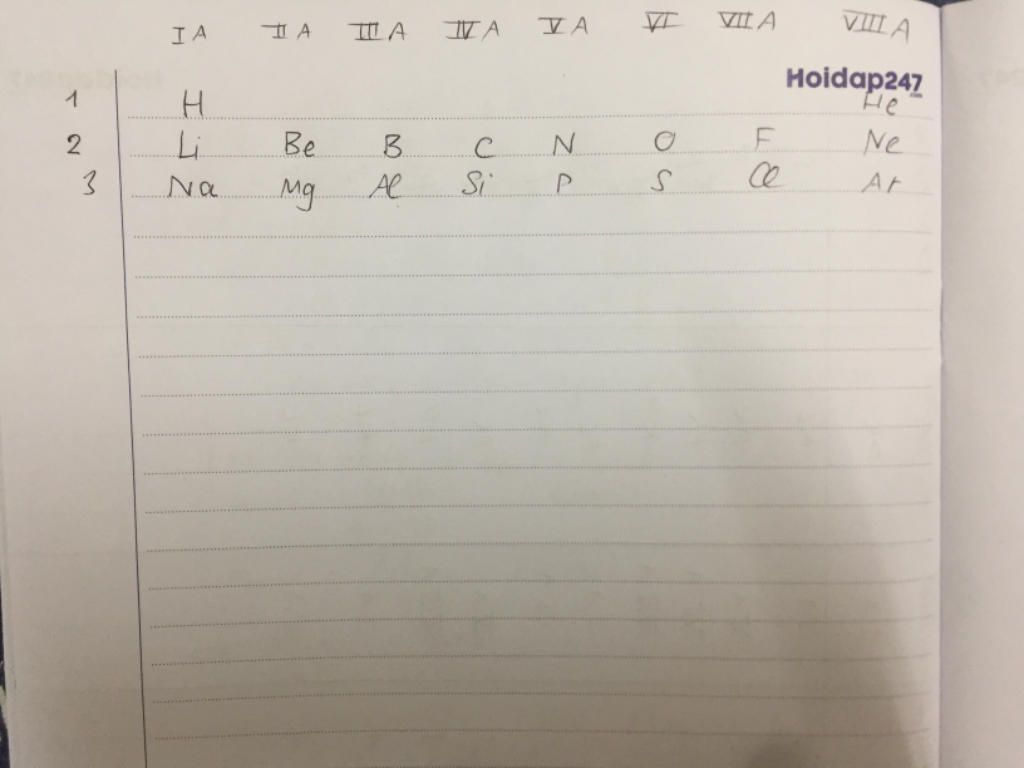 IA IIA IIIA IVA VA VI VIIA VIIIA
Hoidap247
1 H He
2 Li Be B C N O F Ne
3 Na Mg Al Si P S Cl Ar